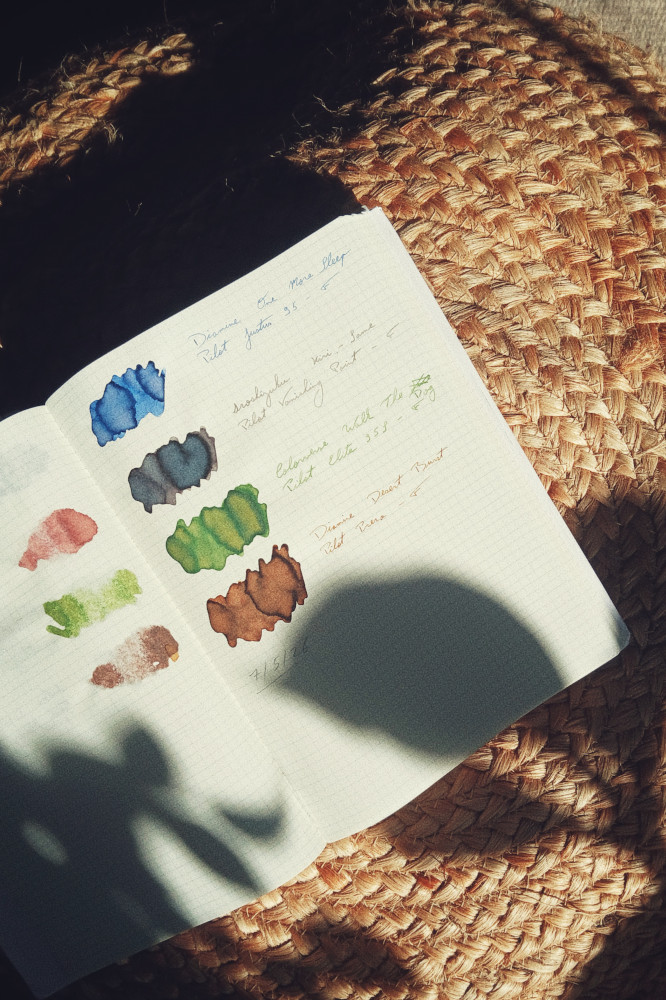 Diamine One More Sleep
Pilot Justus 95 - F
iroshizuku kiri-same
Pilot Vanishing Point - F
Colorverse Walk The Dog
Pilot Elite 95S - F
Diamine Desert Burst
Pilot Prera - F